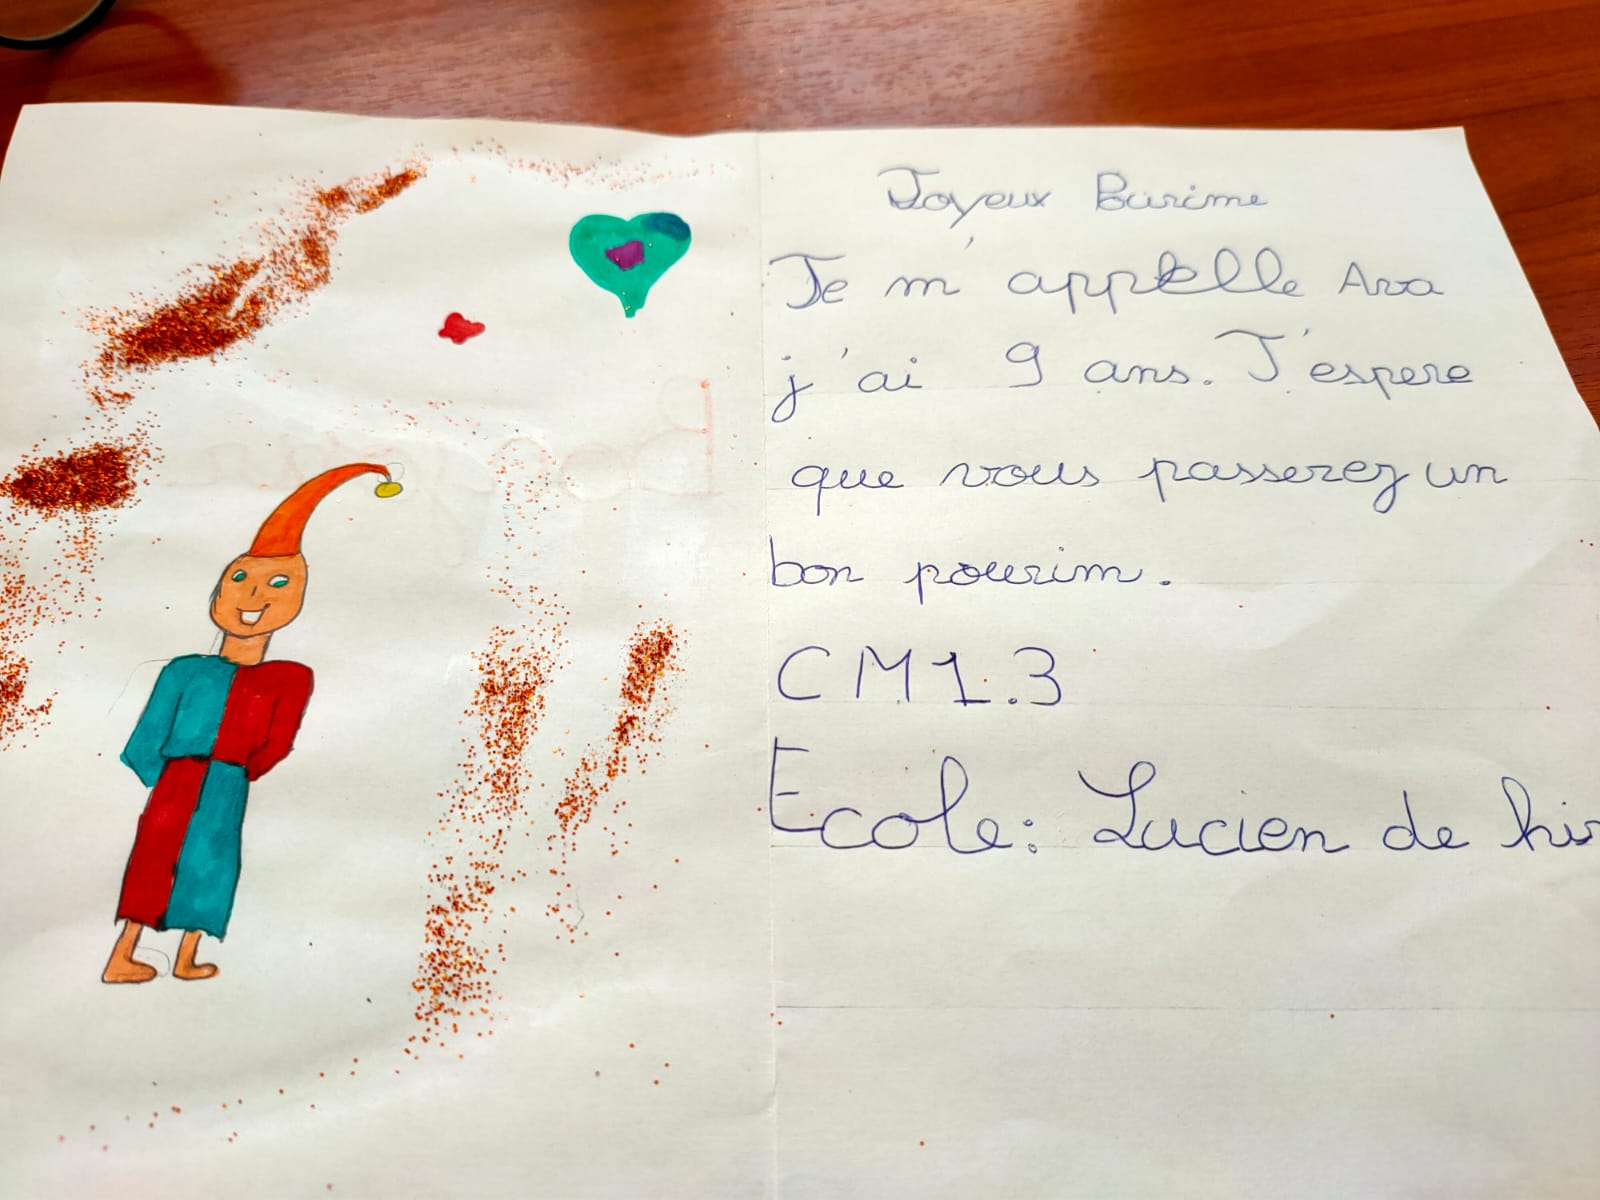 Joyeux Burime
Je m'appelle Ava
j'ai 9 ans. J'espere
que vous passerez un
bon pourim.
CM1.3
Ecole: Lucien de hir